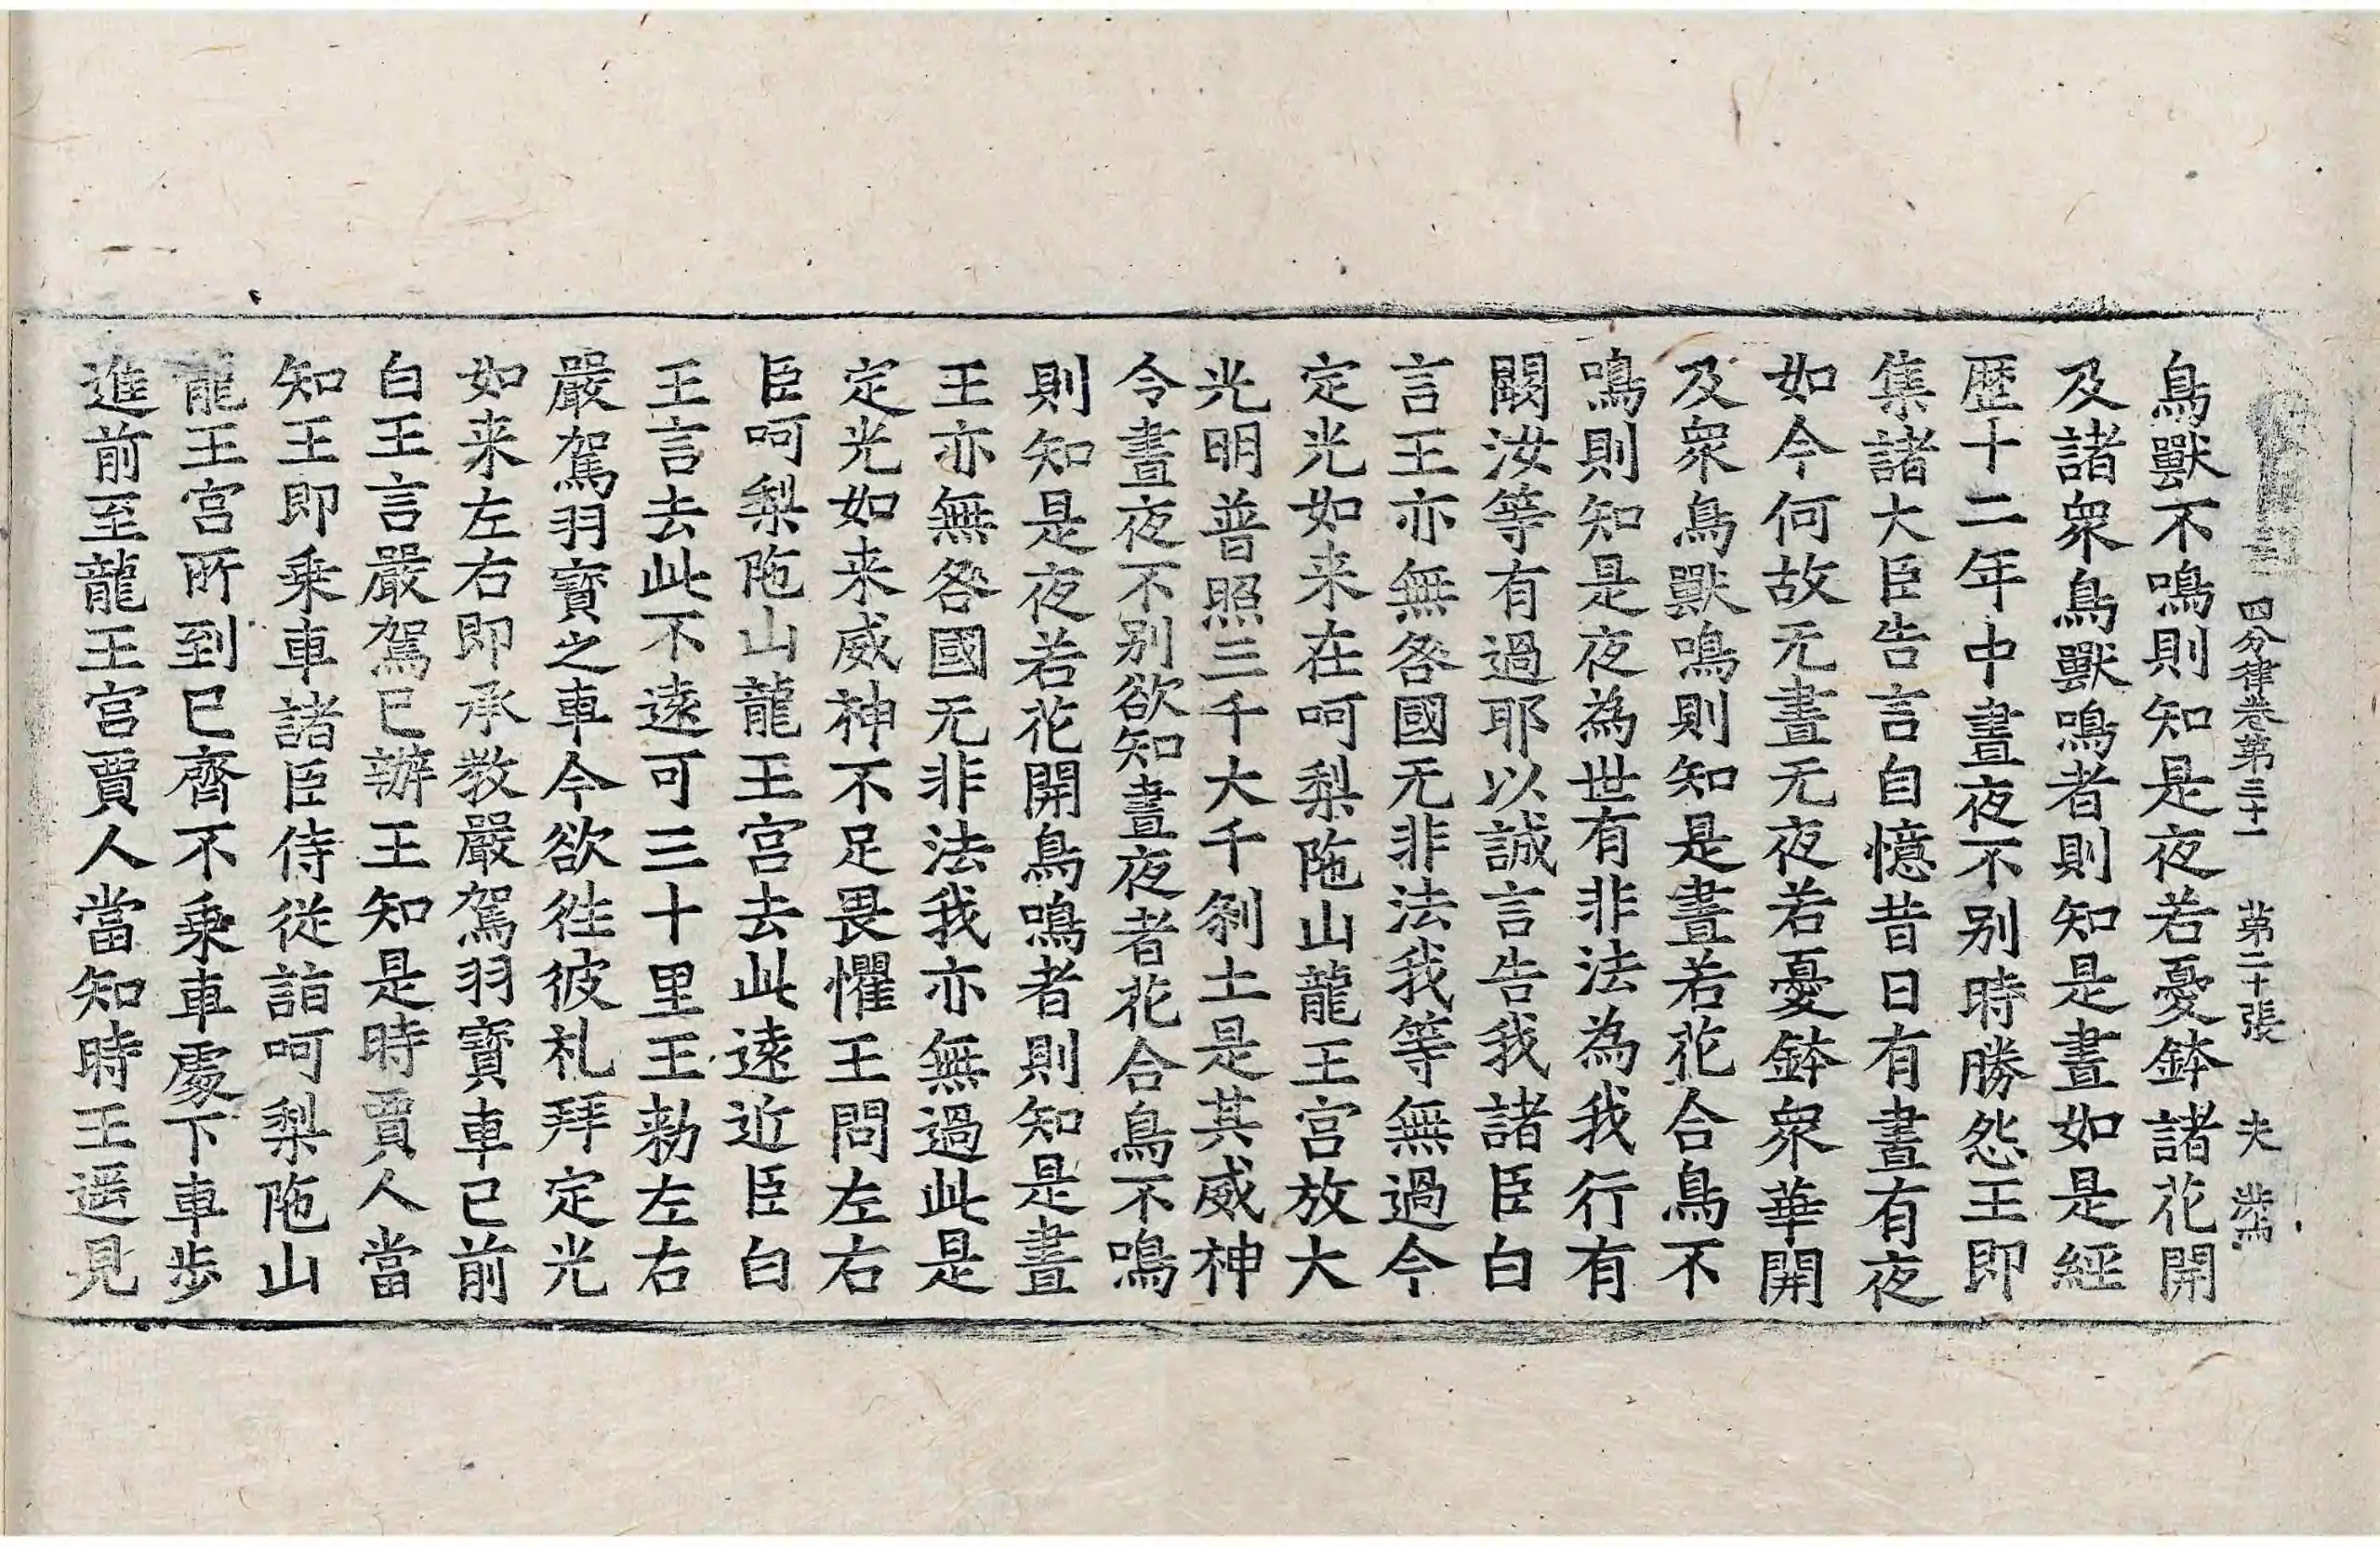 四分律卷第三十一 第二十張 夫
鳥獸不鳴則知是夜若憂鉢諸花開
及諸衆鳥獸鳴者則知是晝如是經
歷十二年中晝夜不别時勝怨王即
集諸大臣告言自憶昔日有晝有夜
如今何故无晝无夜若憂鉢衆華開
及衆鳥獸鳴則知是晝若花合鳥不
鳴則知是夜為世有非法為我行有
闕汝等有過耶以誠言告我諸臣白
言王亦無咎國无非法我等無過今
定光如来在呵梨陁山龍王宫放大
光明普照三千大千刹土是其威神
令晝夜不别欲知晝夜者花合鳥不鳴
則知是夜若花開鳥鳴者則知是晝
王亦無咎國无非法我亦無過此是
定光如来威神不足畏懼王問左右
臣呵梨陁山龍王宫去此逺近臣白
王言去此不逺可三十里王勑左右
嚴駕羽寳之車今欲徃彼礼拜定光
如来左右即承教嚴駕羽寳車已前
白王言嚴駕已辦王知是時賈人當
知王即乗車諸臣侍從詣呵梨陁山
龍王宫所到已齊不乗車處下車步
進前至龍王宫賈人當知時王遥見